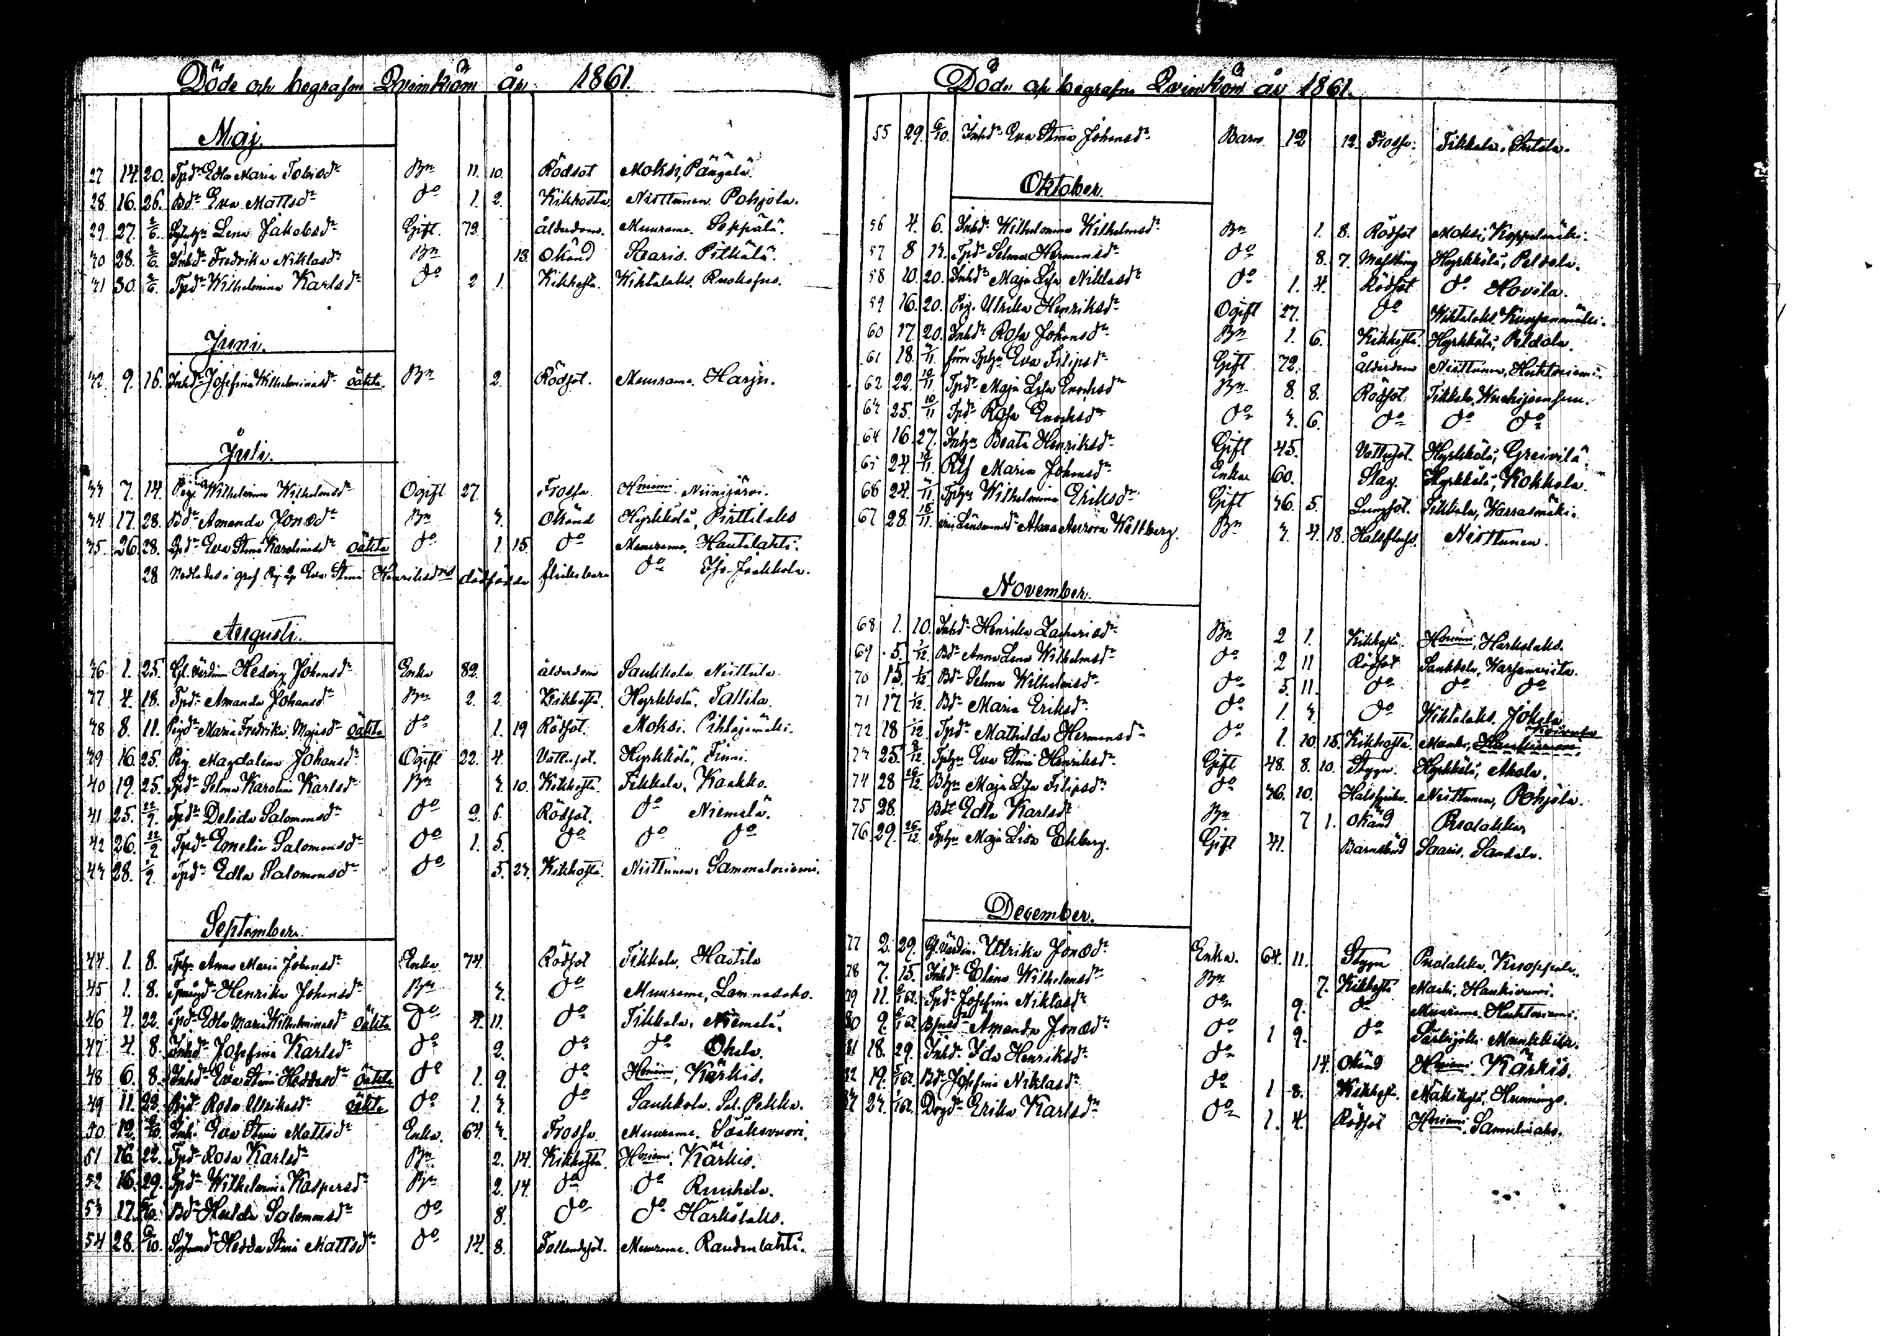 Döde och begrafne Qvinkön år 1861.
Maj.
27 14. 20. Tpd:r Edla Maria Tobiasd:r Bn 11. 10. Rödsot Moksi, Pängälä.
28 16. 26. Bd:r Eva Mattsd:r do 1. 2. Kikhosta Nisttunen Pohjola.
29 27. 2/6. Lena Jakobsd:r Gift 73. ålderdom. Muurame. Seppälä.
30 28. 2/6. Inhd:r Fredrika Niklasd:r Bn 13. Okänd Saaris. Pitkälä.
31 30. 2/6. Tpd:r Wilhelmina Karlsd:r do 2 1. Kikhosta. Wihtalaks. Ruokopus.
Juni.
32 9. 16. Inhd:r Josefina Wilhelminasd:r Oäkta Bn 2. Rödsot. Muurame. Harju.
Juli.
33 7. 14. Pig. Wilhelmina Wilhelmsd:r Ogift 27. Frossa Hniemi Niinijärvi.
34 17. 28. Bd:r Amanda Jonæd:r Bn 3. Okänd Hyrkkölä, Pirttilaks
35 26. 28. Pigd:r Eva Stina Karolinasd:r Oäkta do 1. 15. do Muurame, Hautalahti.
28 Nedlades i graf Eva Stina Henriksdrs dödfödda flickebarn do
Augusti.
36 1. 25. Hedvig Johansd:r Enka 82. ålderdom Saukkola Niittula
37 4. 18. Tpd:r Amanda Johansd:r Bn 2. 2. Kikhosta. Hyrkkölä. Tallila.
38 8. 11. Pigd:r Maria Fredrika Majasd:r Oäkta do 1. 19 Rödsot. Moksi. Pihlajamäki.
39 16. 25. Pig. Magdalena Johansd:r Ogift 22. 4. Vattusot. Hyrkkölä, Finni.
40 19. 25. Tpd:r Selma Karolina Karlsd:r Bn 3. 10. Kikhosta. Tikkala, Kaakko.
41 25. 22/9. Tpd:r Delida Salomonsd:r do 2. 6. Rödsot. do Niemelä.
42 26. 22/9 Tpd:r Emelia Salomonsd:r do 1. 5. do do do
43 28. 1/9. Tpd:r Edla Salomonsd:r do 5. 23. Kikhosta. Nisttunen. Sammaloniemi.
September.
44. 1. 8. Anna Maria Johansd:r Enka 74. Rödsot Tikkala, Hastila
45 1. 8. Henrika Johansd:r Bn 3. do Muurame, Lamnasaho.
46 4. 22. Tpd:r Edla Maria Wilhelminasd:r Oäkta do 4. 11. do Tikkala, Niemelä.
47 4. 8. Inhd:r Josefina Karlsd:r do 2. do do Ohela.
48 6. 8. Inhd:r Eva Stina Heddasd:r Oäkta do 1. 9. do Hniemi, Kärkis.
49 11. 22. Pigd:r Rosa Ulrikasd:r Oäkta do 1. 3. do Saukkola. Pekka.
50 12. Inh. Eva Stina Mattsd:r Enka. 64. 3. Frossa Muurame. Sääksvuori.
51 16. 22. Tpd:r Rosa Karlsd:r Bn 2. 14. Kikhosta. Hniemi. Kärkis.
52 16. 29. Tpd:r Wilhelmina Kaspersd:r Bn 2. 14. do do Ruuhela.
53 17. Bd:r Hulda Salomonsd:r do 8. do do Härkölaks.
54 28. Hedda Stina Mattsd:r do 14. 8. Fallandsjot. Muurame. Raudenlahti.
Döde och begrafne Qvinkön år 1861.
55 29. 6/10. Inhd:r Eva Stina Johansd:r Barn 12 12. Frossa. Tikkala, Antola.
Oktober.
56 4. 6. Inhd:r Wilhelmina Wilhelmsd:r Bn 1. 8. Rödsot Moksi, Koppelmäki.
57 8 13. Tpd:r Selma Hermansd:r do 8. 7. Messling Hyrkkölä, Peldola.
58 10. 20. Inhd:r Maja Lisa Niklasd:r do 1. 4. Rödsot do Hovila.
59 16. 20. Pig. Ulrika Henriksd:r Ogift 27. do Wihtalaks
60 17. 20. Inhd:r Rosa Johansd:r Bn 1. 6. Kikhosta. Hyrkkölä, Peldola.
61 18. Eva Filipsd:r Gift 72. ålderdom Nisttunen, Huhtoniemi.
62 22. 10/11. Tpd:r Maja Lisa Enochsd:r Bn 8. 8. Rödsot Tikkala,
63 25. 10/11 Tpd:r Rosa Enochsd:r do 3. 6. do do do
64 16. 27. Beata Henriksd:r Gift 45. Vattusot. Hyrkkölä, Greivilä.
65 24. Maria Johansd:r Enka 60. Slag. Hyrkkölä, Kokkola.
66 24. Wilhelmina Eriksd:r Gift 36. 5. Lungsot. Tikkala, Warrasmäki.
67 28. Alma Aurora Wallberg. Bn 3. 4. 18. Halsfluss. Nisttunen.
November.
68 1. 10. Inhd:r Henrika Zachrisd:r Bn 2 1. Kikhosta. Hniemi, Härkölaks.
69 5. 1/12. Bd:r Anna Lena Wilhelmsd:r do 2 11 Rödsot Saukkola,
70 15. 1/12. Bd:r Selma Wilhelmsd:r do 5. 11. do do do
71 17. 1/12. Bd:r Maria Eriksd:r do 1. 3. do Wihtalaks, Jokela
72 18 1/12. Tpd:r Mathilda Hermansd:r do 1. 10. 15. Kikhosta
73 25. 8/12. Eva Stina Henriksd:r Gift 48. 8. 10. Styng. Hyrkkölä, Ahola.
74 28 Maja Lisa Filipsd:r do 36. 10. Nisttunen, Pohjola.
75 28. Bd:r Edla Karlsd:r Bn 7 1. Okänd Ruolakka
76 29. 26/12 Maja Lisa Ekberg. Gift 41. Barnsbörd Saaris. Sandala.
December.
77 2. 29. Ulrika Jonæd:r Enka. 64. 11. Styng Ruolakka, Knoppala.
78 7. 15. Inhd:r Elina Wilhelmsd:r Bn 7. Kikhosta Maski, Haukivuori.
79 11. Tpd:r Josefina Niklasd:r do 9. do Muurame. Huhtoniemi.
80 9. Amanda Jonæd:r do 1 9. do Särkijoki. Munkkila.
81 18. 29. Inhd:r Ida Henriksd:r do 14. Okänd Hniemi. Kärkis.
82 19. Bd:r Josefina Niklasd:r do 1 8. Kikhosta. Hennings.
83 23. Erika Karlsd:r do 1. 4. Rödsot Hniemi.